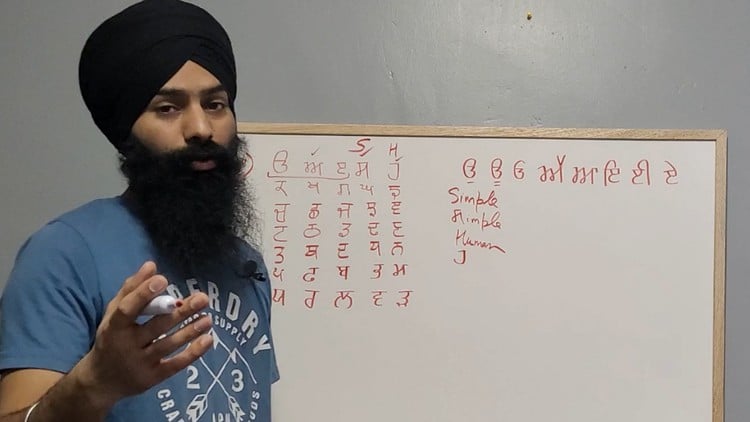 S H
ੳ ਅ ੲ ਸ ਹ
ਕ ਖ ਗ ਘ ਙ
ਚ ਛ ਜ ਝ ਞ
ਟ ਠ ਡ ਢ ਣ
ਤ ਥ ਦ ਧ ਨ
ਪ ਫ ਬ ਭ ਮ
ਯ ਰ ਲ ਵ ੜ
ਉ ਊ ਓ ਆ ਇ ਈ ਏ
Simple
ਸimple
Human
ERDRY
SUPPLY
2 3